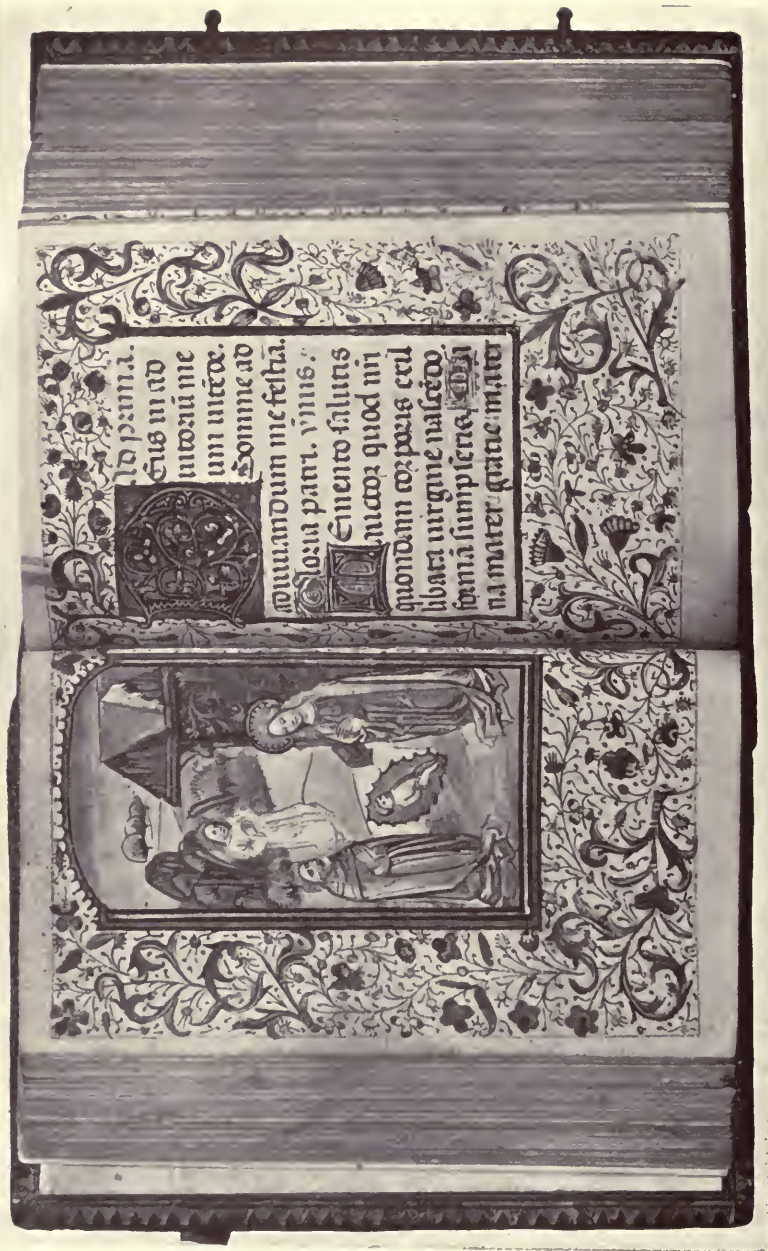 Ad prima.
Deus in ad
iutoriū me
um intēde.
Domine ad
adiuuandum me festia.
Gloria patri. ymus:
Memento salutis
auctor quod nri
quondam corporis ex il
libata uirgine nascēdo
formā sumpseris Ma
ria mater gratie mater